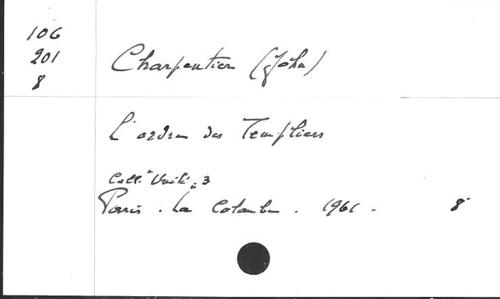 106
201
8
Charpentier (John)
L'ordre des Templiers
Coll. "Unité" 3
Paris. La Colombe. 1961. 8°